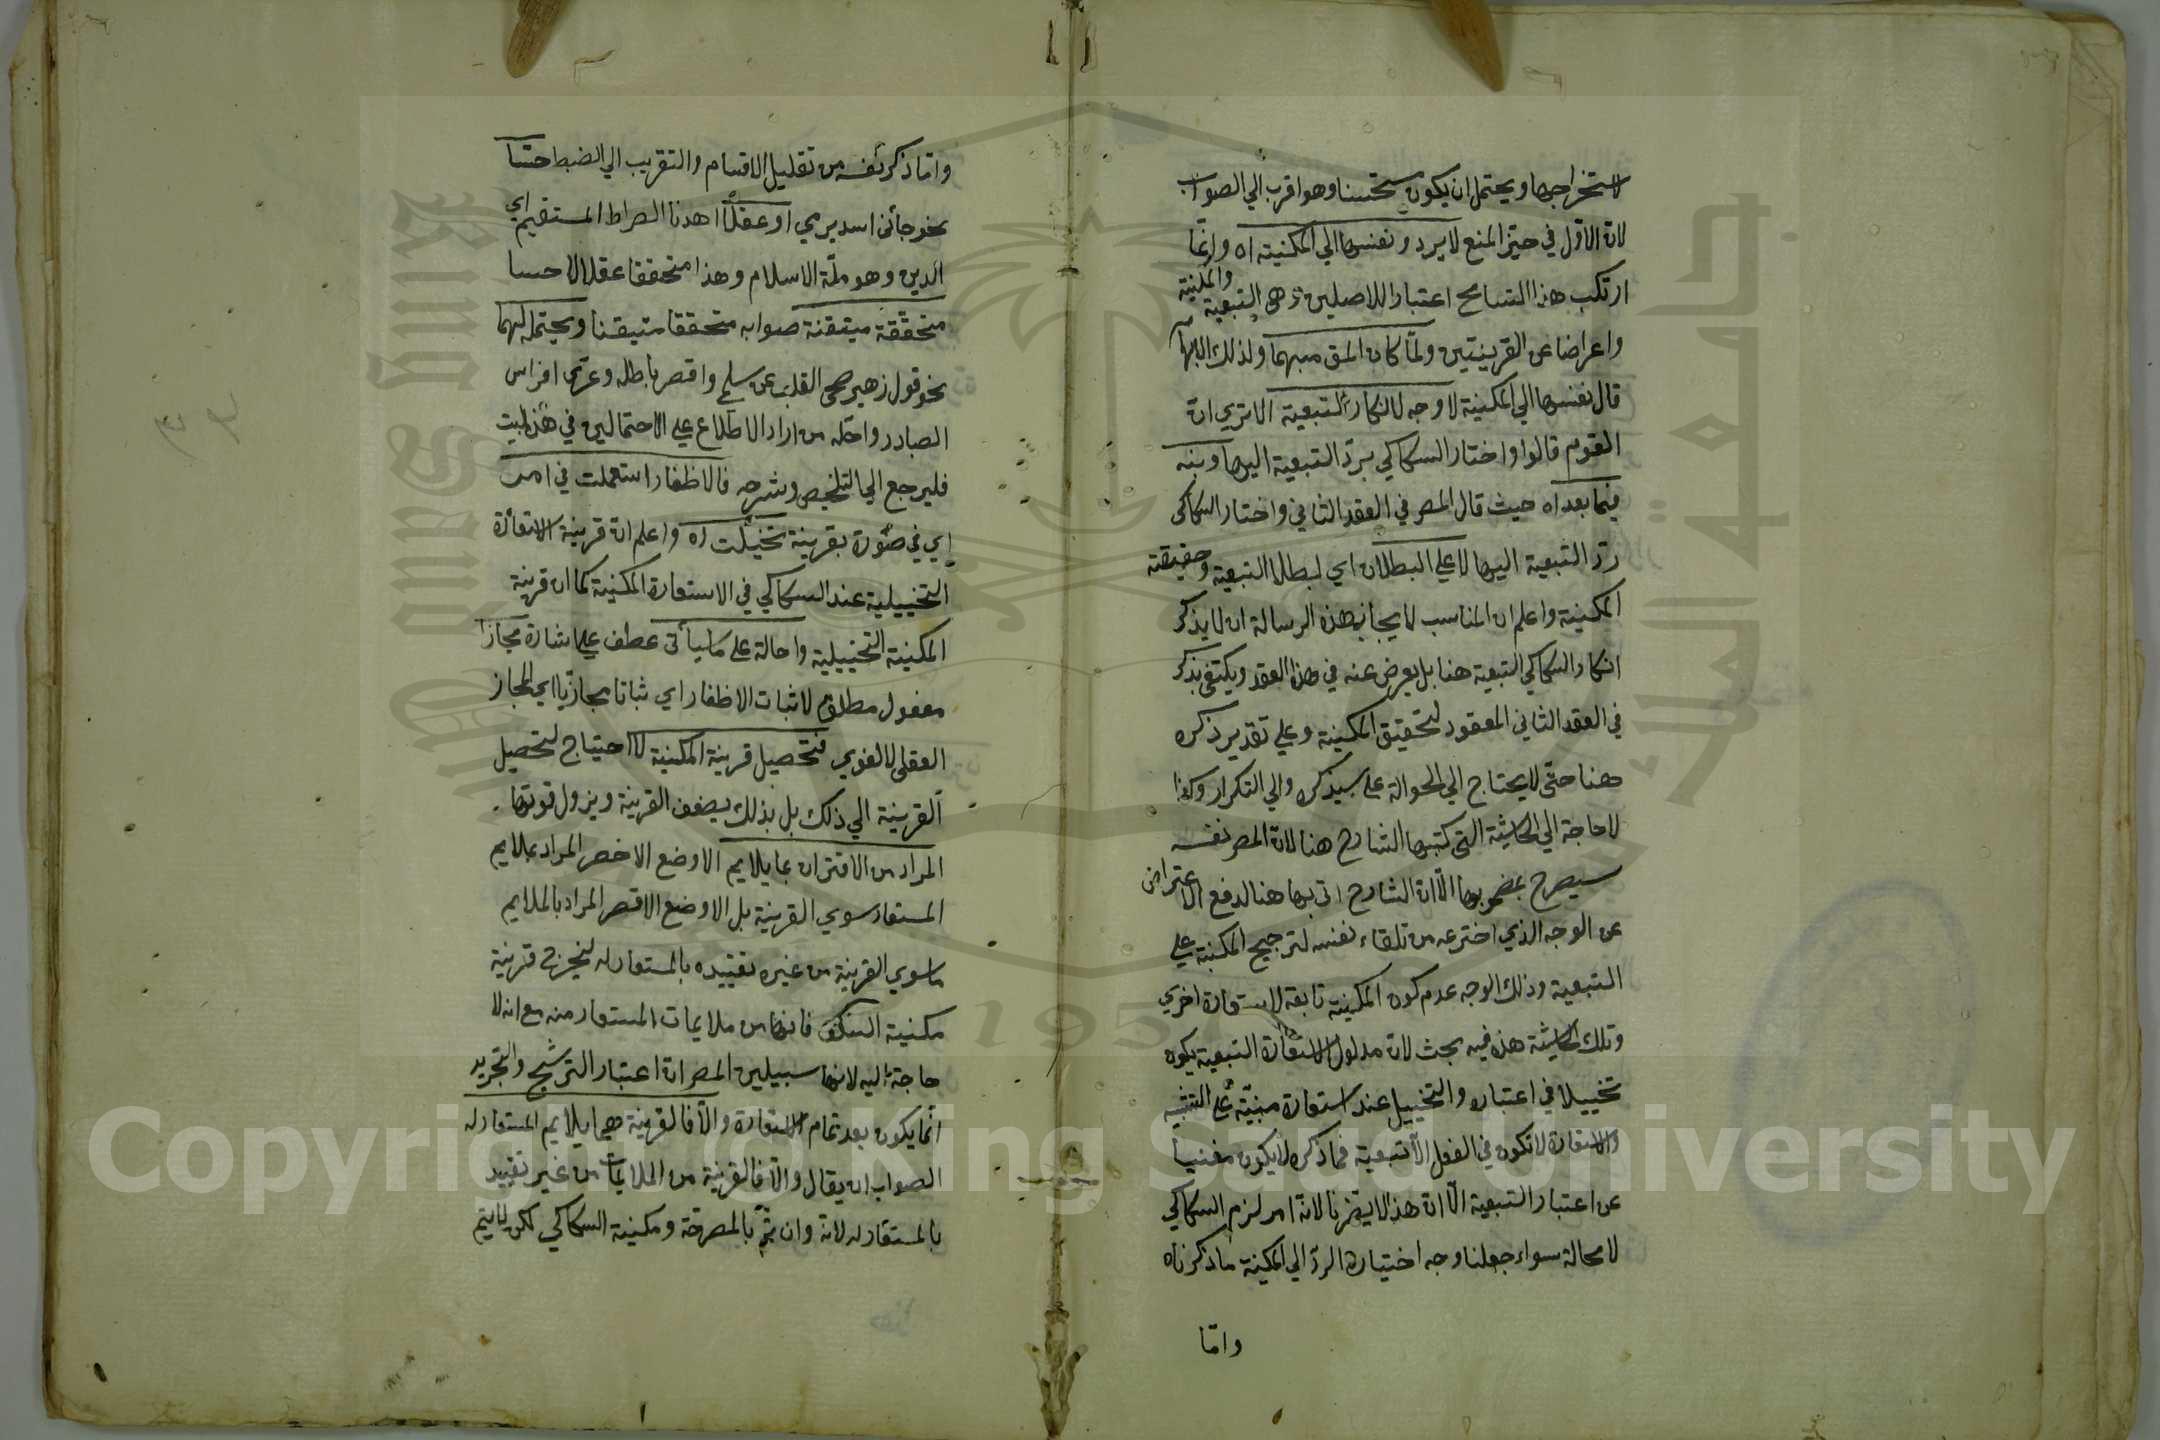 لاستخراجها ويحتمل ان يكون مستحسنا وهو اقرب الي الصواب
لانّ الاوّل في حيّز المنع لا يرد ونفسها الي المكنية اه وانّما
ارتكب هذا التسامح اعتبارا للاصلين وهي التبعية والمكنية
واعراضا عن القرينتين ولمّا كان المق مبهما ولذلك
قال نفسها الي المكنية لا وجه لانكار التبعية الا تري انّ
القوم قالوا واختار السكاكي بردّ التبعية اليها وبنه
فيما بعد اه حيث قال المص في العقد الثاني واختار السكاكي
ردّ التبعية اليها لا علي البطلان اي لبطلا التبعية وحقيقته
المكنية واعلم ان المناسب لما يجانب هذه الرسالة ان لا يذكر
انكار السكاكي التبعية هنا بل يعرض عنه في هذا العقد ويكتفي بذكر
في العقد الثاني المعقود لتحقيق المكنية وعلي تقدير ذكره
هنا حتّي لا يحتاج الي الحوالة علي سيذكره والي التكرار وكذا
لا حاجة الي الحاشية التي كتبها الشارح هنا لانّ المص نفسه
سيصرح بمضمونها الّا انّ الشارح اتي بها هنا لدفع الاعتراض
عن الوجه الذي اخترعه من تلقاء نفسه لترجيح المكنية علي
التبعية وذلك الوجه عدم كون المكنية تابعة لاستعارة اخري
وتلك الحاشية هذه فيه بحث لانّ مدلول الاستعارة التبعية يكون
تخييلا في اعتباره والتخييل عنده استعارة مبنيّة علي التشبيه
والاستعارة لا تكون في الفعل الّا تبعية فما ذكره لا يكون مغنيا
عن اعتبار التبعية الّا انّ هذا لا يضرنا لانّه امر لزم السكاكي
لا محالة سواء جعلنا وجه اختياره الردّ الي المكنية ما ذكرناه
وامّا
وامّا ذكر نفسه من تقليل الاقسام والتقريب الي الضبط حسّا
نحو جائني اسد يرمي او عقلًا اهدنا الصراط المستقيم اي
الدين وهو ملّة الاسلام وهذا متحققا عقلا لا حسا
متحقّقة متيقنة صوابه متحققا متيقنا ويحتملهما
نحو قول زهير صحي القلب عن سلمي واقصر باطله وعرّي افراس
الصبا ورواحله من اراد الاطلاع علي الاحتمالين في هذا البيت
فليرجع الي التلخيص وشرحه فالاظفار استعملت في امر
اي في صورة بقرينة تخيلت اه واعلم انّ قرينة الاستعارة
التخييلية عند السكاكي في الاستعارة المكنية كما ان قرينة
المكنية التخييلية واحالة علي ما سيأتي عطف علي اشارة مجازا
مفعول مطلق لاثبات الاظفار اي ثباتا مجازيّا اي المجاز
العقلي لا لغوي فتحصيل قرينة المكنية لا احتياج لتحصيل
القرينة الي ذلك بل بذلك يضعف القرينة ويزول قوتها .
المراد من الاقتران بما يلايم الاوضع الاخصر المراد بملايم
المستعار سوي القرينة بل الاوضع الاقصر المراد بالملايم
ما سوي القرينة من غير تقييده بالمستعار له ليخرج قرينة
مكنية السكاكي فانها من ملايمات المستعار منه مع انه لا
حاجة اليه لانها سيبين المص انّ اعتبار الترشيح والتجريد
انّما يكون بعد تمام الاستعارة والّا فالقرينة مما يلايم المستعار له
الصواب ان يقال والّا فالقرينة من الملايمات من غير تقييد
بالمستعار له لانّه وان تمّ بالمصرحة ومكنية السكاكي لكن لا يتم
Copyright © King Saud University
1957